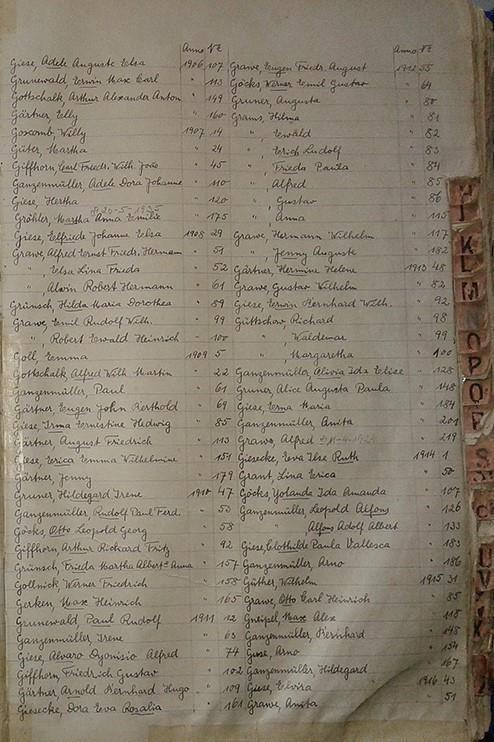 Anno № Anno №
Giese, Adele Auguste Elsa 1906 107
Grunewald, Erwin Max Carl " 113
Gottschalk, Arthur Alexander Anton " 149
Gärtner, Elly " 160
Goscomb, Willy 1907 14
Güter, Martha " 24
Giffhorn, Carl Friedr. Wilh. João " 45
Ganzenmüller, Adele Dora Johanne " 110
Giese, Hertha " 120
Gröhler, Martha Anna Emilie " 175
Giese, Elfriede Johanne Elsa 1908 29
Grawe, Alfred Ernst Friedr. Hermann " 51
" Elsa Lina Frieda " 52
" Alwin Robert Hermann " 61
Grünsch, Hilda Maria Dorothea " 89
Grawe, Emil Rudolf Wilh. " 99
" Robert Ewald Heinrich " 100
Goll, Emma 1909 5
Gottschalk, Alfred Wilh. Martin " 22
Ganzenmüller, Paul " 61
Gärtner, Eugen John Berthold " 69
Giese, Irma Ernestine Hedwig " 85
Gärtner August Friedrich " 113
Giese, Erica Emma Wilhelmine " 151
Gärtner, Jenny " 179
Gruner, Hildegard Irene 1910 47
Ganzenmüller, Rudolf Paul Ferd. " 50
Göcks, Otto Leopold Georg " 58
Giffhorn Arthur Richard Fritz " 92
Grünsch, Frieda Martha Alberta Anna " 157
Gollnick, Werner Friedrich " 158
Gerken, Max Heinrich " 165
Grunewald, Paul Rudolf 1911 12
Ganzenmüller Irene " 63
Giese, Alvaro Dyonisio Alfred " 74
Giffhorn, Friedrich Gustav " 102
Gärtner Arnold Bernhard Hugo " 109
Giesecke, Dora Eva Rosalia " 161
Grawe, Eugen Friedr. August 1912 55
Göcks, Werner Emil Gustav " 64
Gruner, Augusta " 80
Grams, Hilma " 81
" , Ewald " 82
" , Erich Ludolf " 83
" , Frieda Paula " 84
" , Alfred " 85
" , Gustav " 86
" , Anna " 115
Grawe, Hermann Wilhelm " 117
" , Jenny Auguste " 182
Gärtner, Hermine Helene 1913 48
Grawe, Gustav Wilhelm " 82
Giese, Erwin Bernhard Wilh. " 92
Güttschow, Richard " 98
" , Waldemar " 99
" , Margaretha " 100
Ganzenmüller, Olivia Ida Elise " 128
Gruner, Alice Augusta Paula " 148
Giese, Erna Maria " 184
Ganzenmüller, Anita " 201
Grawe, Alfred " 219
Giesecke, Eva Ilse Ruth 1914 1
Grant, Lina Erica " 50
Göcks, Yolanda Ida Amanda " 107
Ganzenmüller, Leopold Alfons " 126
" Alfons Adolf Albert " 133
Giese, Clothilde Paula Vallesca " 183
Ganzenmüller, Arno " 186
Güther, Wilhelm 1915 31
Grawe, Otto Carl Heinrich " 85
Gneipel, Max Alex " 118
Ganzenmüller Bernhard " 148
Giese, Arno " 154
Ganzenmüller, Hildegard " 167
Giese, Elvira 1916 43
Grawe, Anita " 51
K
L
M
O
P
Q